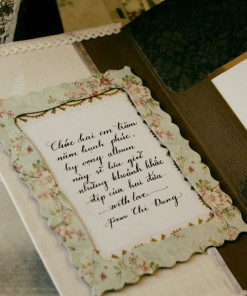 Chúc hai em trăm
năm hạnh phúc,
hy vọng album
này sẽ lưu giữ
những khoảnh khắc
đẹp của hai đứa
with love
from Chi Dung